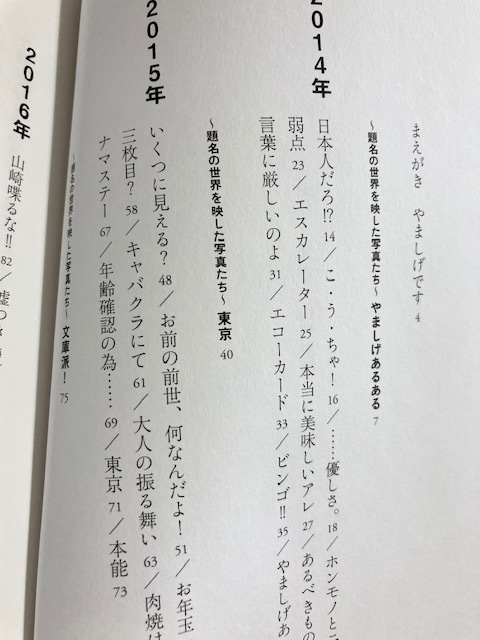 まえがき　やましげです 4
～題名の世界を映した写真たち～ やましげあるある 7
2014年
日本人だろ!? 14／こ・う・ちゃ! 16／……優しさ。 18／ホンモノと
弱点 23／エスカレーター 25／本当に美味しいアレ 27／あるべきもの
言葉に厳しいのよ 31／エコーカード 33／ビンゴ!! 35／やましげあ
～題名の世界を映した写真たち～ 東京 40
2015年
いくつに見える? 48／お前の前世、何なんだよ! 51／お年玉
三枚目? 58／キャバクラにて 61／大人の振る舞い 63／肉焼け
ナマステー 67／年齢確認の為…… 69／東京 71／本能 73
～題名の世界を映した写真たち～ 文庫派! 75
2016年
山崎喋るな!! 82／嘘つき